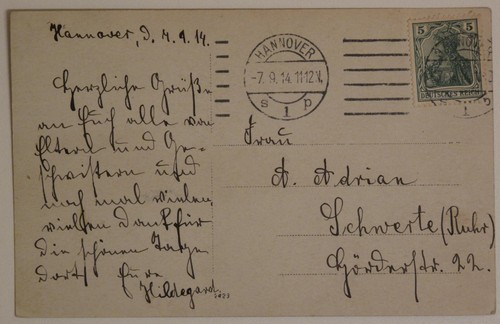 Hannover, d. 7.9.14.
Herzliche Grüße
an Euch alle von
Eltern und Ge-
schwistern und
noch mal vielen,
vielen Dank für
die schönen Tage
dort. Eure
Hildegard.
HANNOVER
-7.9.14.11-12V.
s 1 p
5 5
DEUTSCHES REICH
Frau
A. Adrian
Schwerte (Ruhr)
Hörderstr. 22.